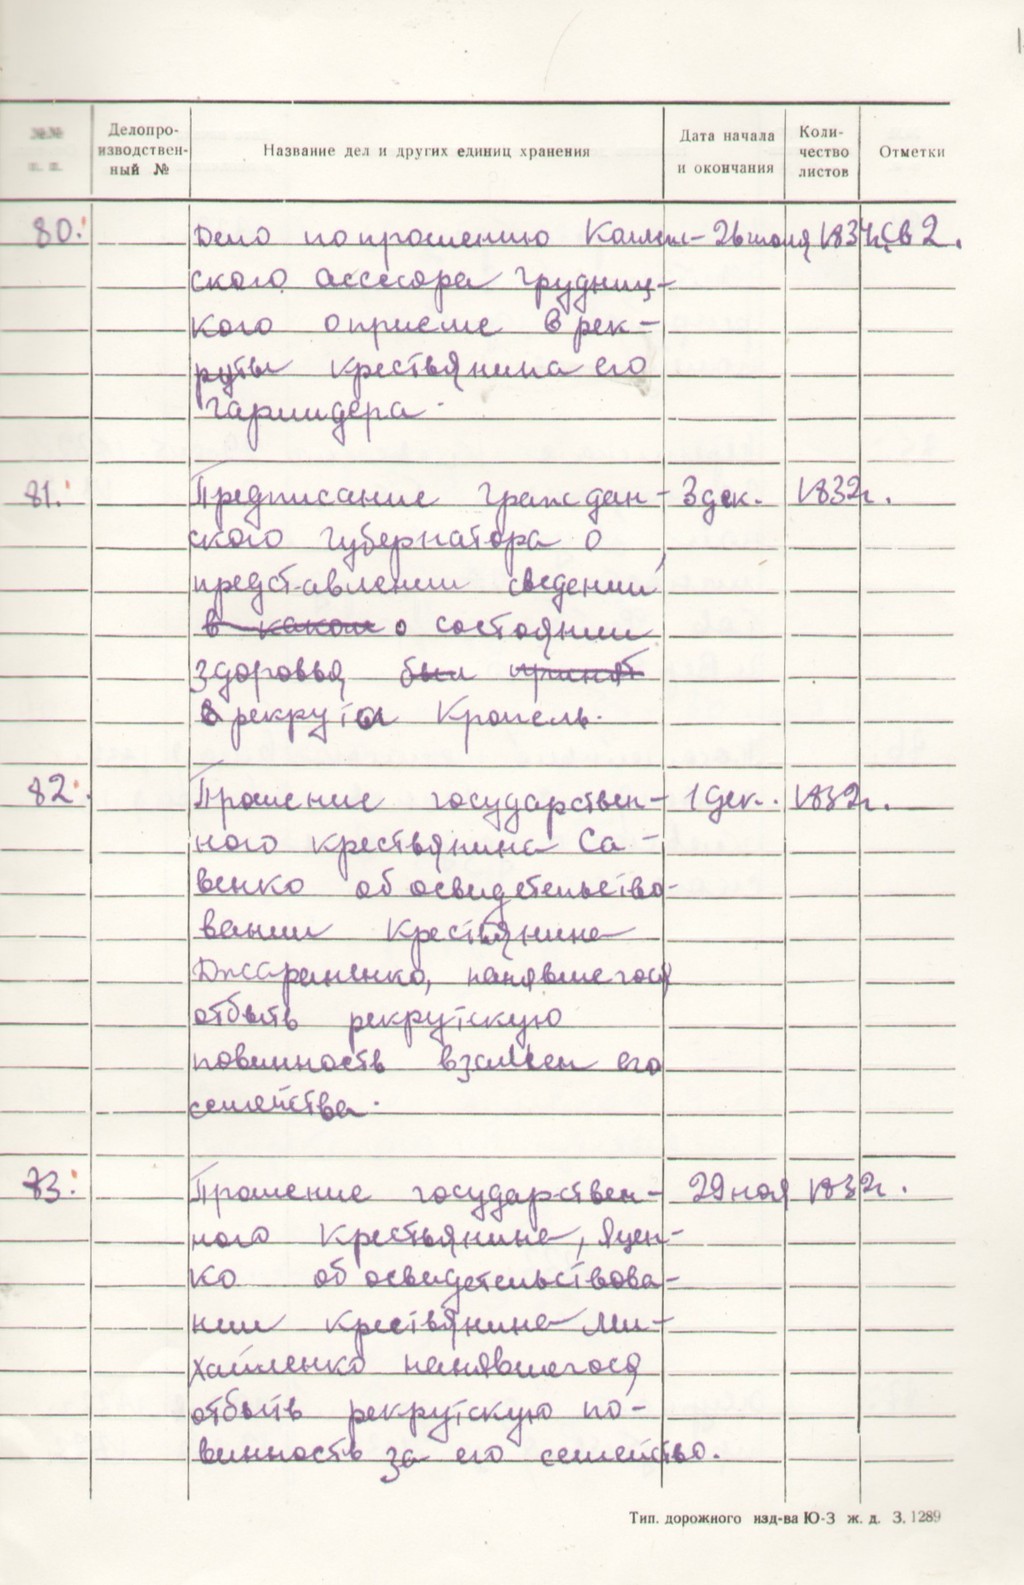 №№ п. п.
Делопро-
изводствен-
ный №
Название дел и других единиц хранения
Дата начала
и окончания
Коли-
чество
листов
Отметки
80. Дело по прошению Коллеж- 26 июля 1834г. св 2.
ского ассесора Грудниц-
кого о приеме в рек-
руты крестьянина его
Гармидера.
81. Предписание Граждан- 3 дек. 1832г.
ского губернатора о
представлении сведений
в каком о состоянии
здоровья был принят
в рекруты Кропель.
82. Прошение государствен- 1 дек. 1832г.
ного крестьянина Са-
венко об освидетельство-
вании крестьянина
нанявшегося
отбыть рекрутскую
повинность взамен его
семейства.
83. Прошение государствен- 29 ноя 1832г.
ного Крестьянина, Яцен-
ко об освидетельствова-
нии крестьянина Ми-
хайленко нанявшегося
отбыть рекрутскую по-
винность за его семейство.
Тип. дорожного изд-ва Ю-З ж. д. З. 1289